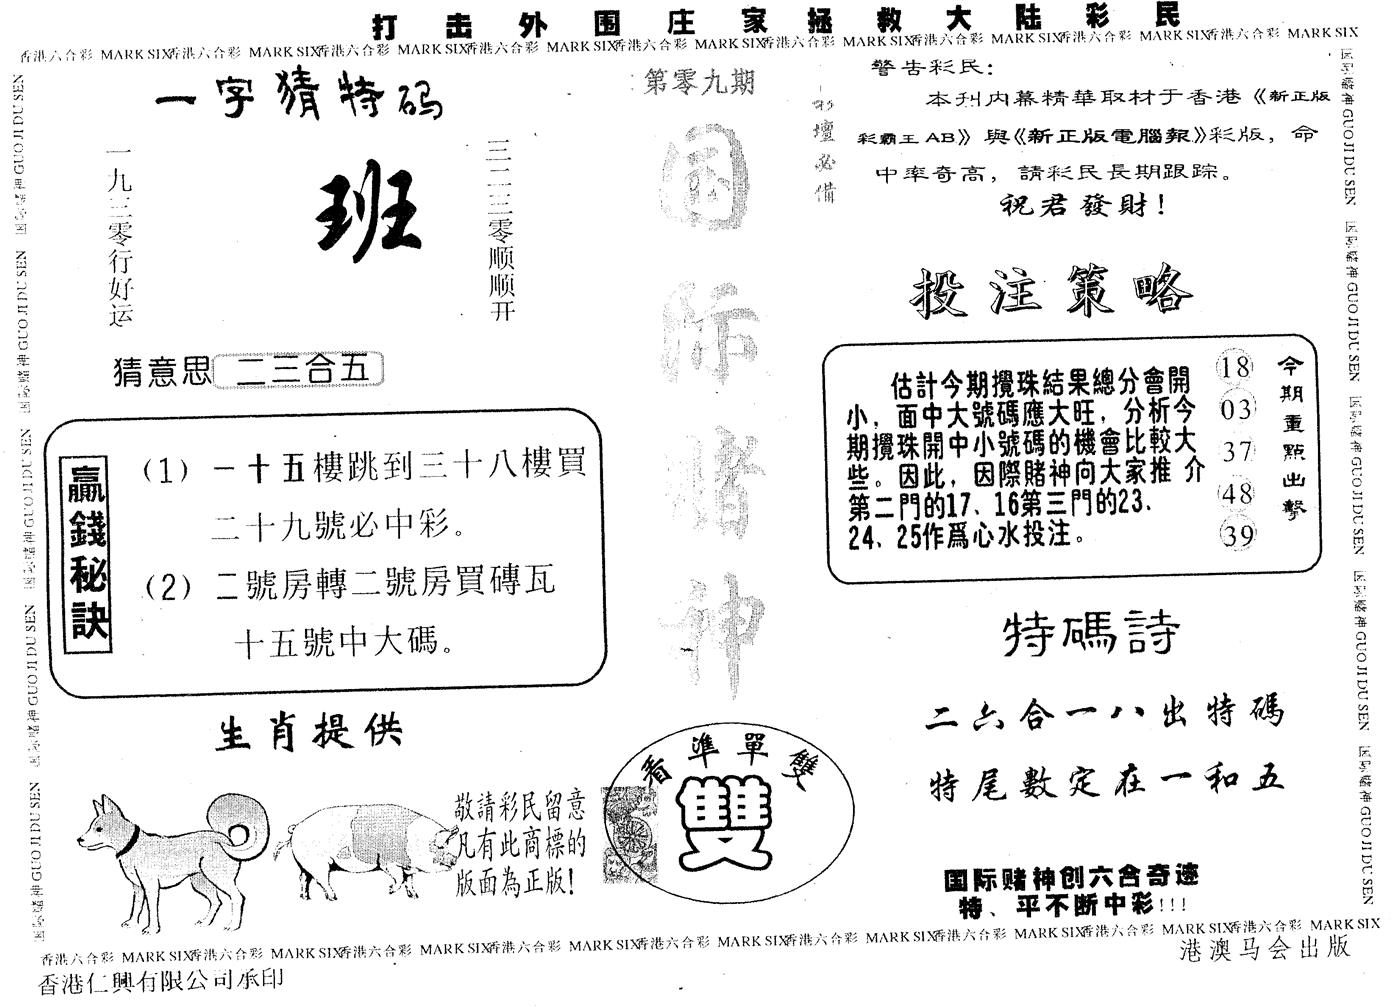 打击外围庄家拯救大陆彩民
香港六合彩 MARK SIX香港六合彩 MARK SIX香港六合彩 MARK SIX香港六合彩 MARK SIX香港六合彩 MARK SIX香港六合彩 MARK SIX香港六合彩 MARK SIX香港六合彩 MARK SIX香港六合彩 MARK SIX
一字猜特码
一九三零行好运
班
三二三零顺顺开
猜意思 二三合五
赢錢秘訣
(1) 一十五樓跳到三十八樓買
二十九號必中彩。
(2) 二號房轉二號房買磚瓦
十五號中大碼。
生肖提供
敬請彩民留意
凡有此商標的
版面為正版!
第零九期
彩壇必備
国际赌神
看準單雙
雙
警告彩民:
本刊内幕精華取材于香港《新正版
彩霸王AB》與《新正版電腦報》彩版，命
中率奇高，請彩民長期跟踪。
祝君發財!
投注策略
估計今期攪珠結果總分會開
小，面中大號碼應大旺，分析今
期攪珠開中小號碼的機會比較大
些。因此，因際賭神向大家推介
第二門的17、16第三門的23、
24、25作爲心水投注。
18
03
37
48
39
今期重點出擊
特碼詩
二六合一八出特碼
特尾數定在一和五
国际赌神创六合奇迹
特、平不断中彩!!!
国际赌神 GUO JI DU SEN 国际赌神 GUO JI DU SEN 国际赌神 GUO JI DU SEN 国际赌神 GUO JI DU SEN 国际赌神 GUO JI DU SEN
国际赌神 GUO JI DU SEN 国际赌神 GUO JI DU SEN 国际赌神 GUO JI DU SEN 国际赌神 GUO JI DU SEN 国际赌神 GUO JI DU SEN
香港六合彩 MARK SIX香港六合彩 MARK SIX香港六合彩 MARK SIX香港六合彩 MARK SIX香港六合彩 MARK SIX香港六合彩 MARK SIX香港六合彩 MARK SIX香港六合彩 MARK SIX香港六合彩 MARK SIX
香港仁興有限公司承印
港澳马会出版